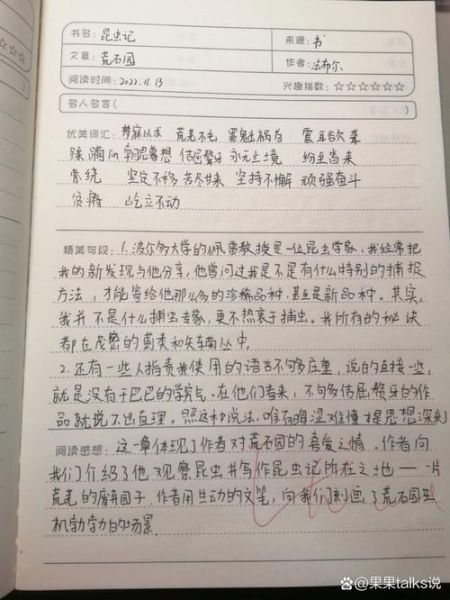 书名：昆虫记 来源：书
文章：荒石园 作者：法布尔
阅读时间：2022.11.13 兴趣指数：☆☆☆☆☆☆
名人名言（
优美词汇：梦寐以求 荒芜不毛 罪魁祸首 震耳欲聋
蹂躏 冥思苦想 佶屈聱牙 永无止境 纷至沓来
萦绕 坚定不移 苦尽甘来 坚持不懈 顽强奋斗
贫瘠 屹立不动
精美句段：1.波尔多大学的佩雷教授是一位昆虫学家，我经常把
我的新发现与他分享，他曾问过我是不是有什么特别的捕捉
方法，才能寄给他那么多的珍稀品种，甚至是新品种。其实，
我并不是什么捕虫专家，更不热衷于捕虫。我所有的秘诀
都在茂密的蓟类和矢车菊丛中。
2.还有一些人指责我使用的语言不够庄重，说的直接一些，
就是没有干巴巴的学院气。在他们看来，不够多佶屈聱牙的作
品就说不出真理。照这种说法，唯有晦涩难懂才是思想深刻
阅读感想：这一章体现了作者对荒石园的喜爱之情。作者向
我们介绍了他观察昆虫并写作昆虫记所在之地——一片
荒芜的废弃园子。作者用生动的文笔，向我们刻画了荒石园生
机勃勃的场景。
@果果talks说